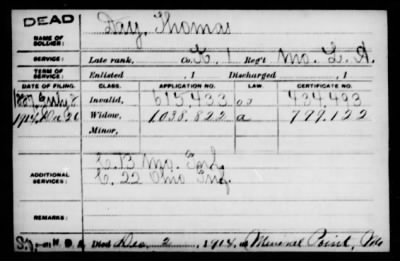 DEAD
NAME OF SOLDIER: Day, Thomas
SERVICE: Late rank, Co. K, 1 Reg't Mo. L. A.
TERM OF SERVICE: Enlisted , 1 Discharged , 1
DATE OF FILING. CLASS. APPLICATION NO. LAW. CERTIFICATE NO.
1887 July 8 Invalid, 615.433 434.493
1914 Dec 26 Widow, 1038.822 a 779.122
Minor,
ADDITIONAL SERVICES: C. B Mo. Inf.
C. 22 Ohio Inf.
REMARKS:
Died Dec. 2, 1914, at Mineral Point, Mo